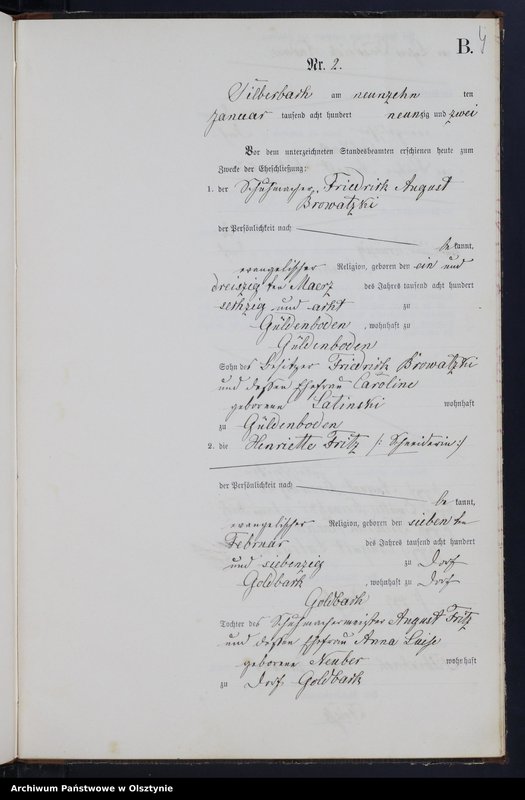 B. 4
Nr. 2.
Silberbach am neunzehn ten
Januar tausend acht hundert neunzig und zwei
Vor dem unterzeichneten Standesbeamten erschienen heute zum
Zwecke der Eheschließung:
1. der Schuhmacher, Friedrich August
Browatzki
der Persönlichkeit nach
be kannt,
evangelischer Religion, geboren den ein und
dreiszig ten Maerz des Jahres tausend acht hundert
sechzig und acht zu
Güldenboden, wohnhaft zu
Güldenboden
Sohn des Besitzer Friedrich Browatzki
und dessen Ehefrau Caroline
geborene Latinski wohnhaft
zu Güldenboden
2. die Henriette Fritz /: Schneiderin :/
der Persönlichkeit nach
be kannt,
evangelischer Religion, geboren den sieben ten
Februar des Jahres tausend acht hundert
und siebenzig zu Dorf
Goldbach, wohnhaft zu Dorf
Goldbach
Tochter des Schuhmachermeister August Fritz
und dessen Ehefrau Anna Luise
geborene Neuber wohnhaft
zu Dorf Goldbach
Archiwum Państwowe w Olsztynie